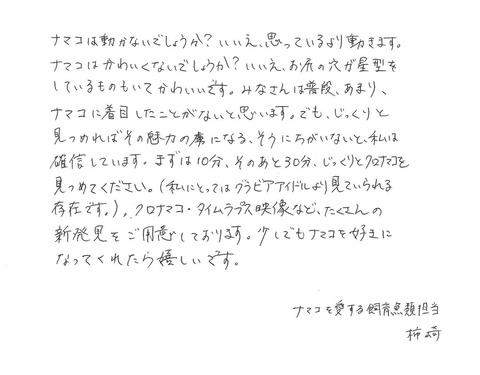 ナマコは動かないでしょうか？いいえ、思っているより動きます。
ナマコはかわいくないでしょうか？いいえ、お尻の穴が星型を
しているものもいてかわいいです。みなさんは普段、あまり、
ナマコに着目したことがないと思います。でも、じっくりと
見つめればその魅力の虜になる、そうにちがいないと、私は
確信しています。まずは10分、そのあと30分、じっくりとクロナマコを
見つめてください。（私にとってはグラビアアイドルより見ていられる
存在です。）、クロナマコ・タイムラプス映像など、たくさんの
新発見をご用意しております。少しでもナマコを好きに
なってくれたら嬉しいです。
ナマコを愛する飼育魚類担当
柿崎